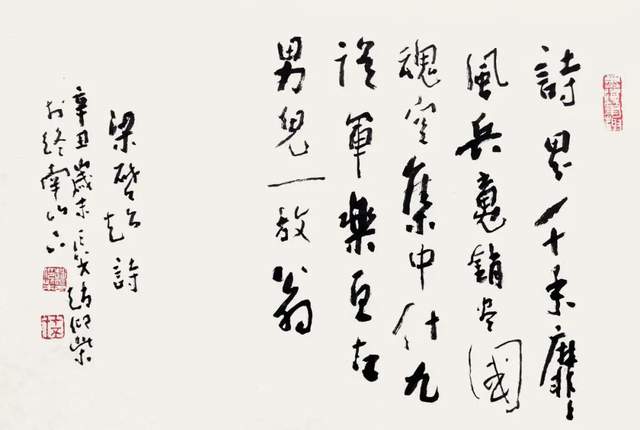 詩界千年靡靡
風兵魂銷尽國
魂空集中什九
從軍樂亘古
男兒一放翁
梁啓超詩
辛丑歲末
於終南山下